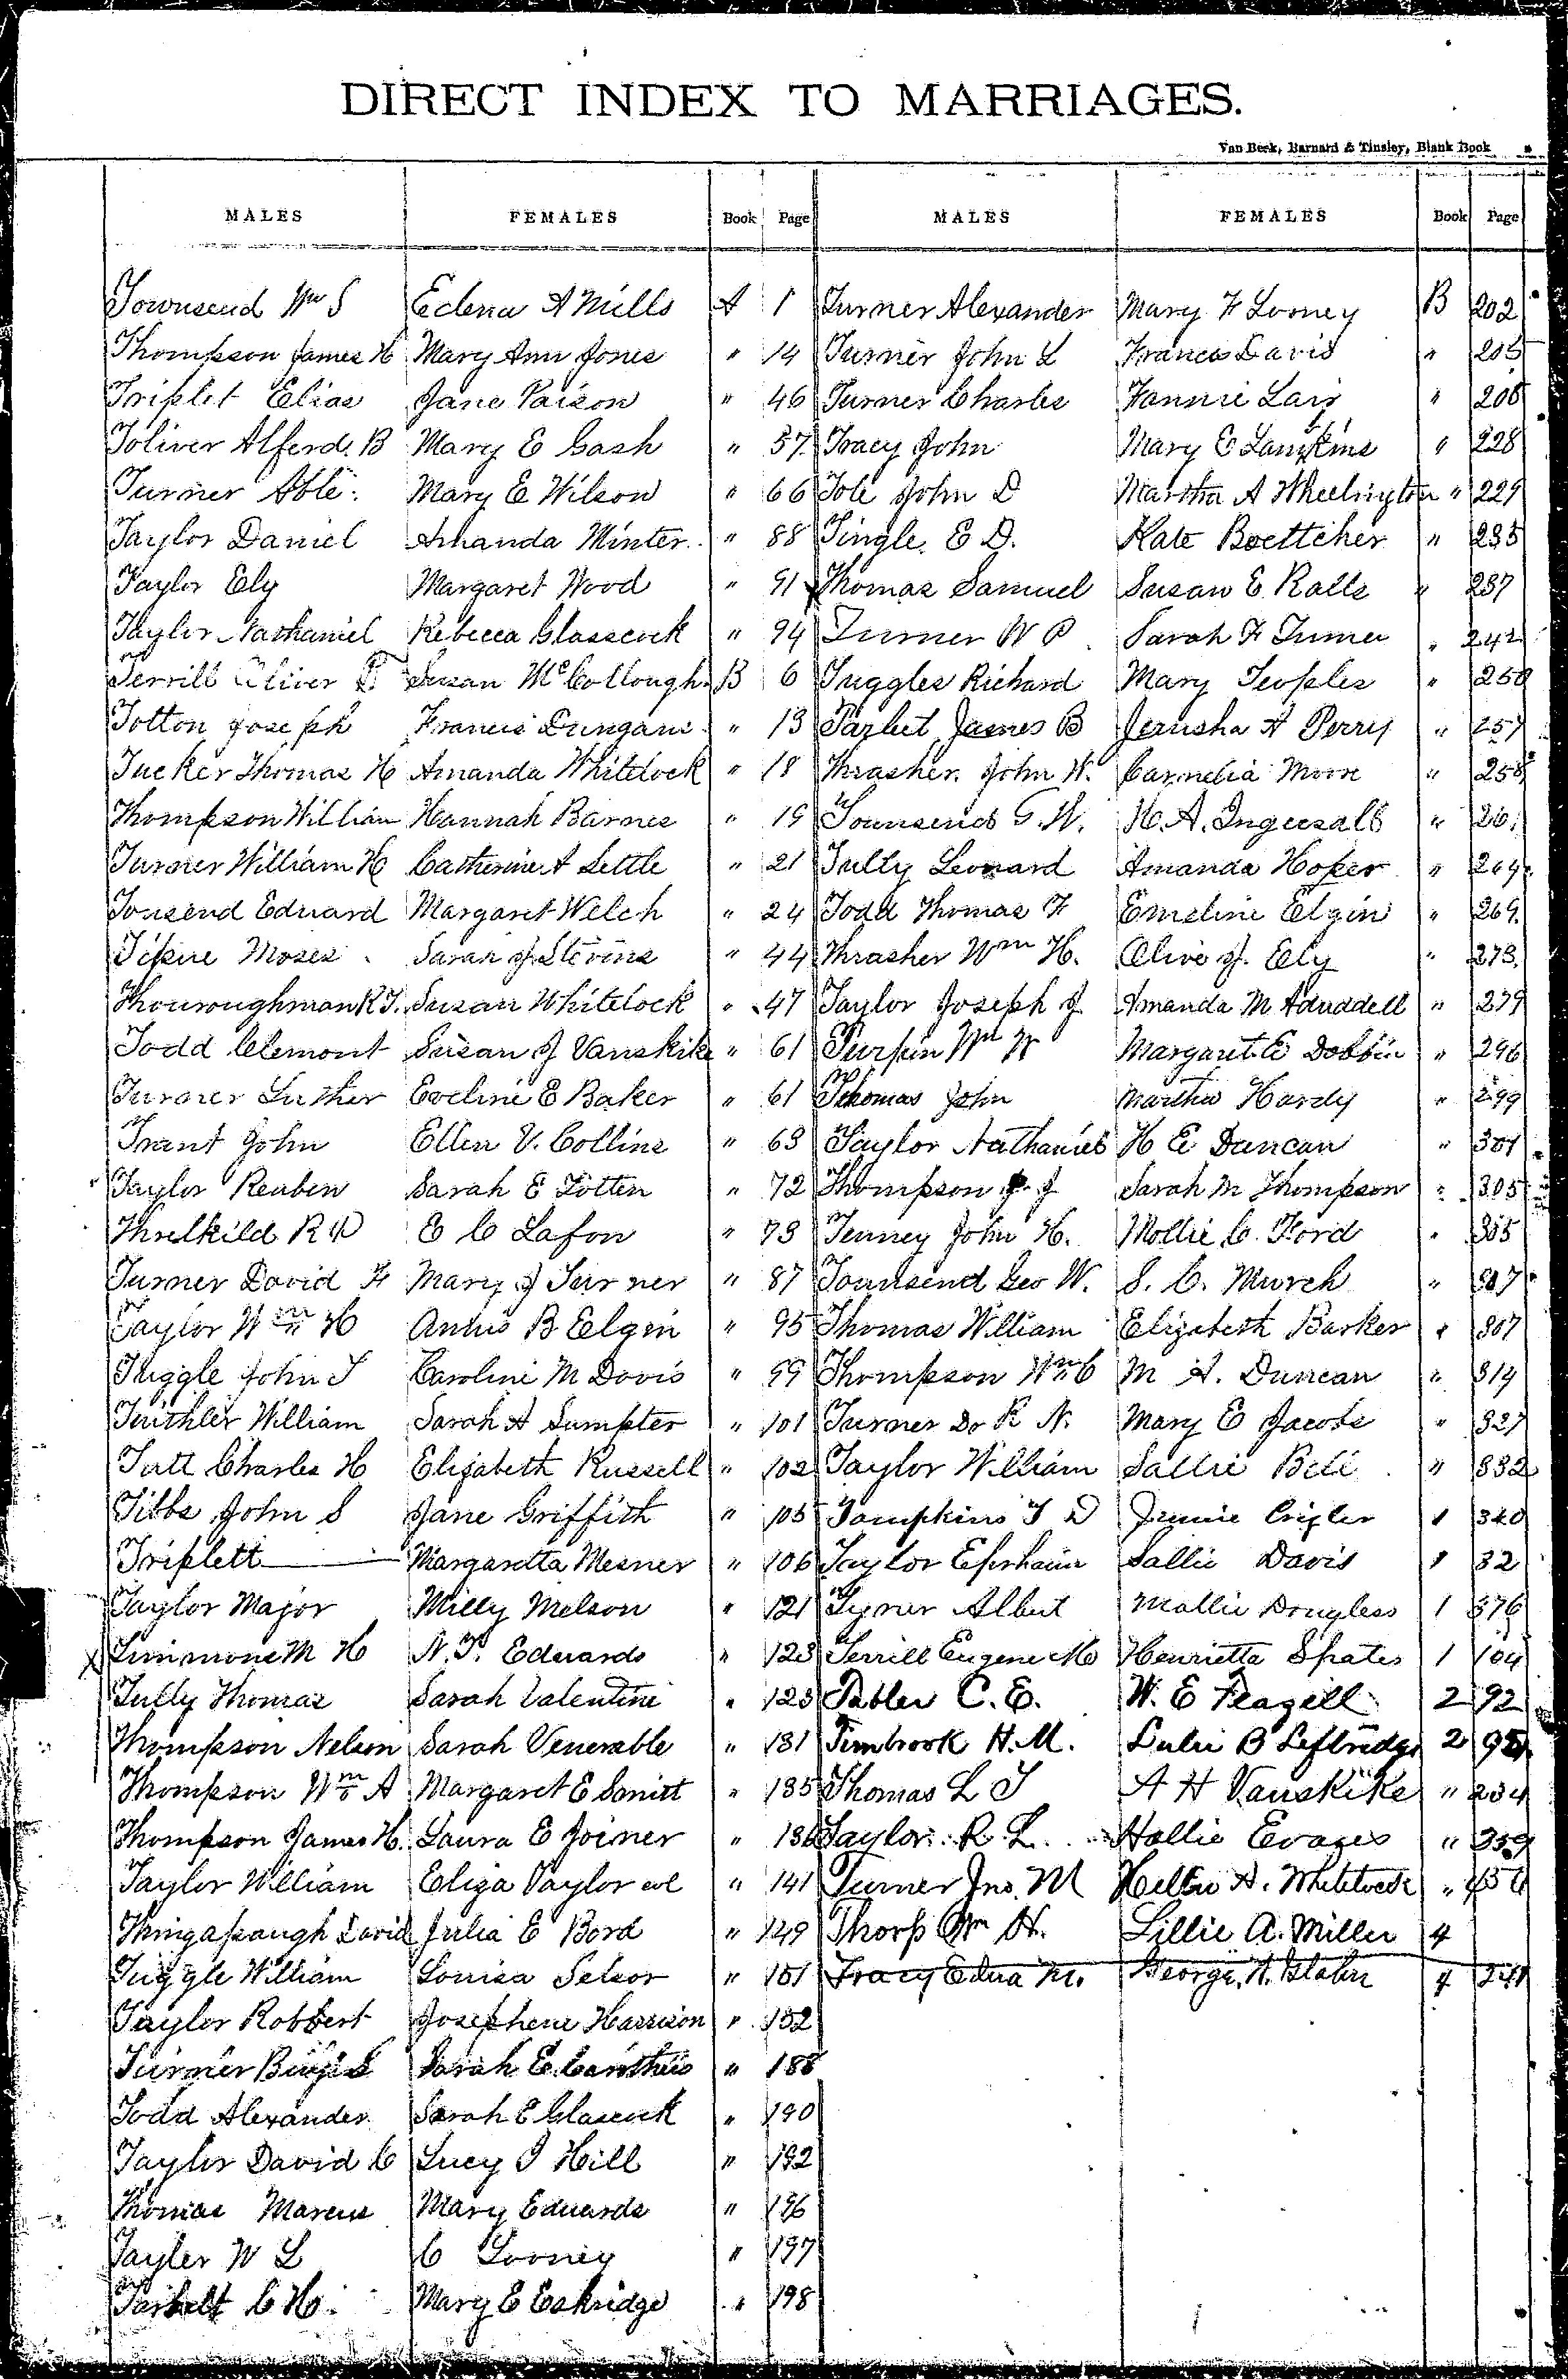 DIRECT INDEX TO MARRIAGES.
Van Beek, Barnard & Tinsley, Blank Book
MALES FEMALES Book Page MALES FEMALES Book Page
Townsend Wm S Edena A Mills A 1 Turner Alexander Mary F Looney B 202
Thompson James H Mary Ann Jones " 14 Turner John L Frances Davis " 205
Triplet Elias Jane Paison " 46 Turner Charles Fannie Lair " 208
Toliver Alferd. B Mary E Cash " 57 Tracy John Mary E Lampkins " 228
Turner Able Mary E Wilson " 66 Tole John D Martha A Wheelington " 229
Taylor Daniel Amanda Minter " 88 Tingle. E D. Kate Boettcher " 235
Taylor Ely Margaret Wood " 91 Thomas Samuel Susan E. Ralls " 237
Taylor Nathaniel Rebecca Glasscock " 94 Turner W P Sarah F Turner " 242
Terrill Oliver P. Susan McCollough B 6 Tuggles Richard Mary Teoples " 250
Totton Joseph Francis Dungans " 13 Tarlut James B Jerusha A Perry " 257
Tucker Thomas H Amanda Whitelock " 18 Thrasher. John W. Carnelia Moore " 258
Thompson William Hannah Barnes " 19 Townsend G. W. H. A. Ingersall " 261
Turner William H Catherine A Settle " 21 Tully Leonard Amanda Hoker " 264
Tousend Edward Margaret Welch " 24 Todd Thomas F Emeline Elgin " 269
Tipkie Moses Sarah J. Stevens " 44 Thrasher Wm H. Olive J. Ely " 273
Thouroughman R T. Susan Whitelock " 47 Taylor Joseph J Amanda M Aduddell " 279
Todd Clemont Susan J Vanskike " 61 Turpin Wm W Margaret E Dobbin " 296
Turner Luther Eveline E Baker " 61 Thomas John Martha Hardy " 299
Trant John Ellen V. Collins " 63 Taylor Nathaniel H E Duncan " 301
Taylor Reuben Sarah E Totten " 72 Thompson J. J Sarah M Thompson " 305
Threlkild R P E C Lafon " 73 Tenney John H. Mollie C. Ford " 305
Turner David F Mary J Turner " 87 Townsend Geo W. S. C. Murch " 307
Taylor Wm H Annis B Elgin " 95 Thomas William Elizabeth Barker " 307
Tuggle John T Caroline M Davis " 99 Thompson Wm C M A. Duncan " 314
Tuithler William Sarah A Sumpter " 101 Turner Dr R N. Mary E Jacobs " 327
Tutt Charles H Elizabeth Russell " 102 Taylor William Sallie Bell " 332
Tibbs John S Jane Griffith " 105 Tompkins T D Jennie Crigler 1 340
Triplett Margaretta Mesner " 106 Taylor Ephraim Sallie Davis 1 32
Taylor Major Milly Melson " 121 Tyner Albert Mollie Douglass 1 376
X Timmons M H N. T. Edwards " 123 Terrill Eugene M Henrietta Spates 1 104
Tully Thomas Sarah Valentine " 125 Tabler C. E. W. E Feagell 2 92
Thompson Nelson Sarah Venerable " 131 Timbrook H. M. Lulie B Leftridge 2 95
Thompson Wm A Margaret E Smitt " 135 Thomas L T A H Vanskike " 234
Thompson James H. Laura E Joiner " 136 Taylor R. L. Hallie Evages " 359
Taylor William Eliza Taylor col " 141 Turner Jno. M Nellie A. Whitelock " 456
Thingapaugh David Julia E Bord " 149 Thorp Wm H. Lillie A. Miller 4
Tuggle William Louisa Selsor " 151 Tracy Edna M. George N. Glahn 4 241
Taylor Robbert Josephene Harrison " 152
Turner Benj S Sarah E. Canthus " 188
Todd Alexander Sarah E Glascock " 190
Taylor David C Lucy J Hill " 192
Thomas Marcus Mary Edwards " 196
Tayler W L C Looney " 197
Tarbelt C H. Mary E Eskridge " 198